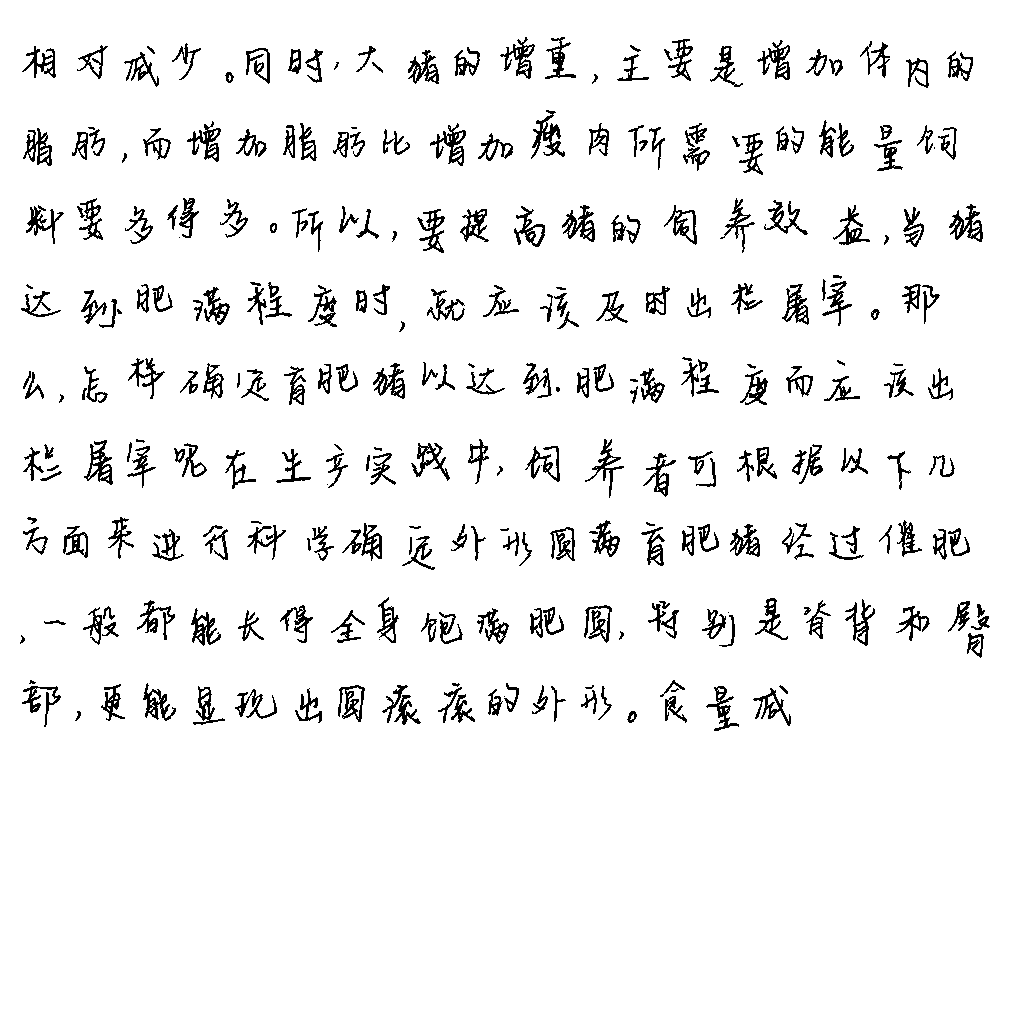 相对减少。同时,大猪的增重,主要是增加体内的
脂肪,而增加脂肪比增加瘦肉所需要的能量饲
料要多得多。所以,要提高猪的饲养效益,当猪
达到肥满程度时,就应该及时出栏屠宰。那
么,怎样确定育肥猪以达到肥满程度而应该出
栏屠宰呢在生产实践中,饲养者可根据以下几
方面来进行科学确定外形圆满育肥猪经过催肥
,一般都能长得全身饱满肥圆,特别是脊背和臀
部,更能显现出圆滚滚的外形。食量减